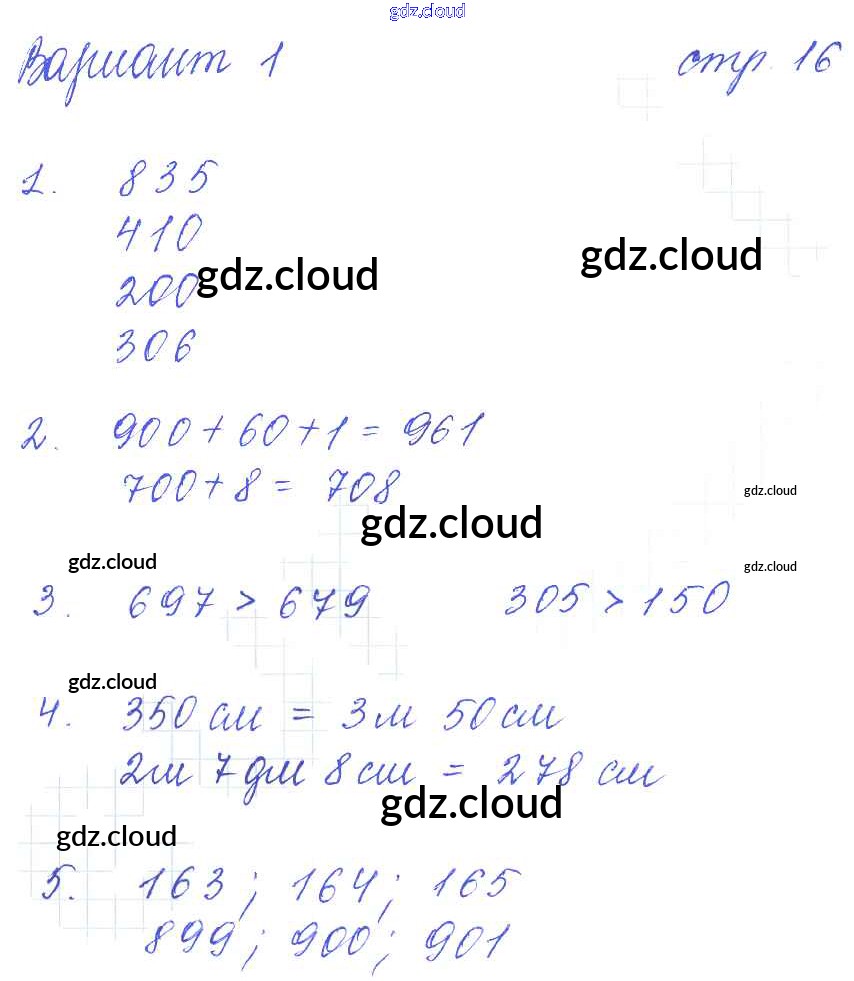 gdz.cloud
Вариант 1 стр. 16
1. 835
410
gdz.cloud
200 gdz.cloud
306
2. 900 + 60 + 1 = 961
700 + 8 = 708
gdz.cloud
gdz.cloud
gdz.cloud
gdz.cloud
3. 697 > 679 305 > 150
gdz.cloud
4. 350 см = 3 м 50 см
2 м 7 дм 8 см = 278 см
gdz.cloud
gdz.cloud
5. 163; 164; 165
899; 900; 901